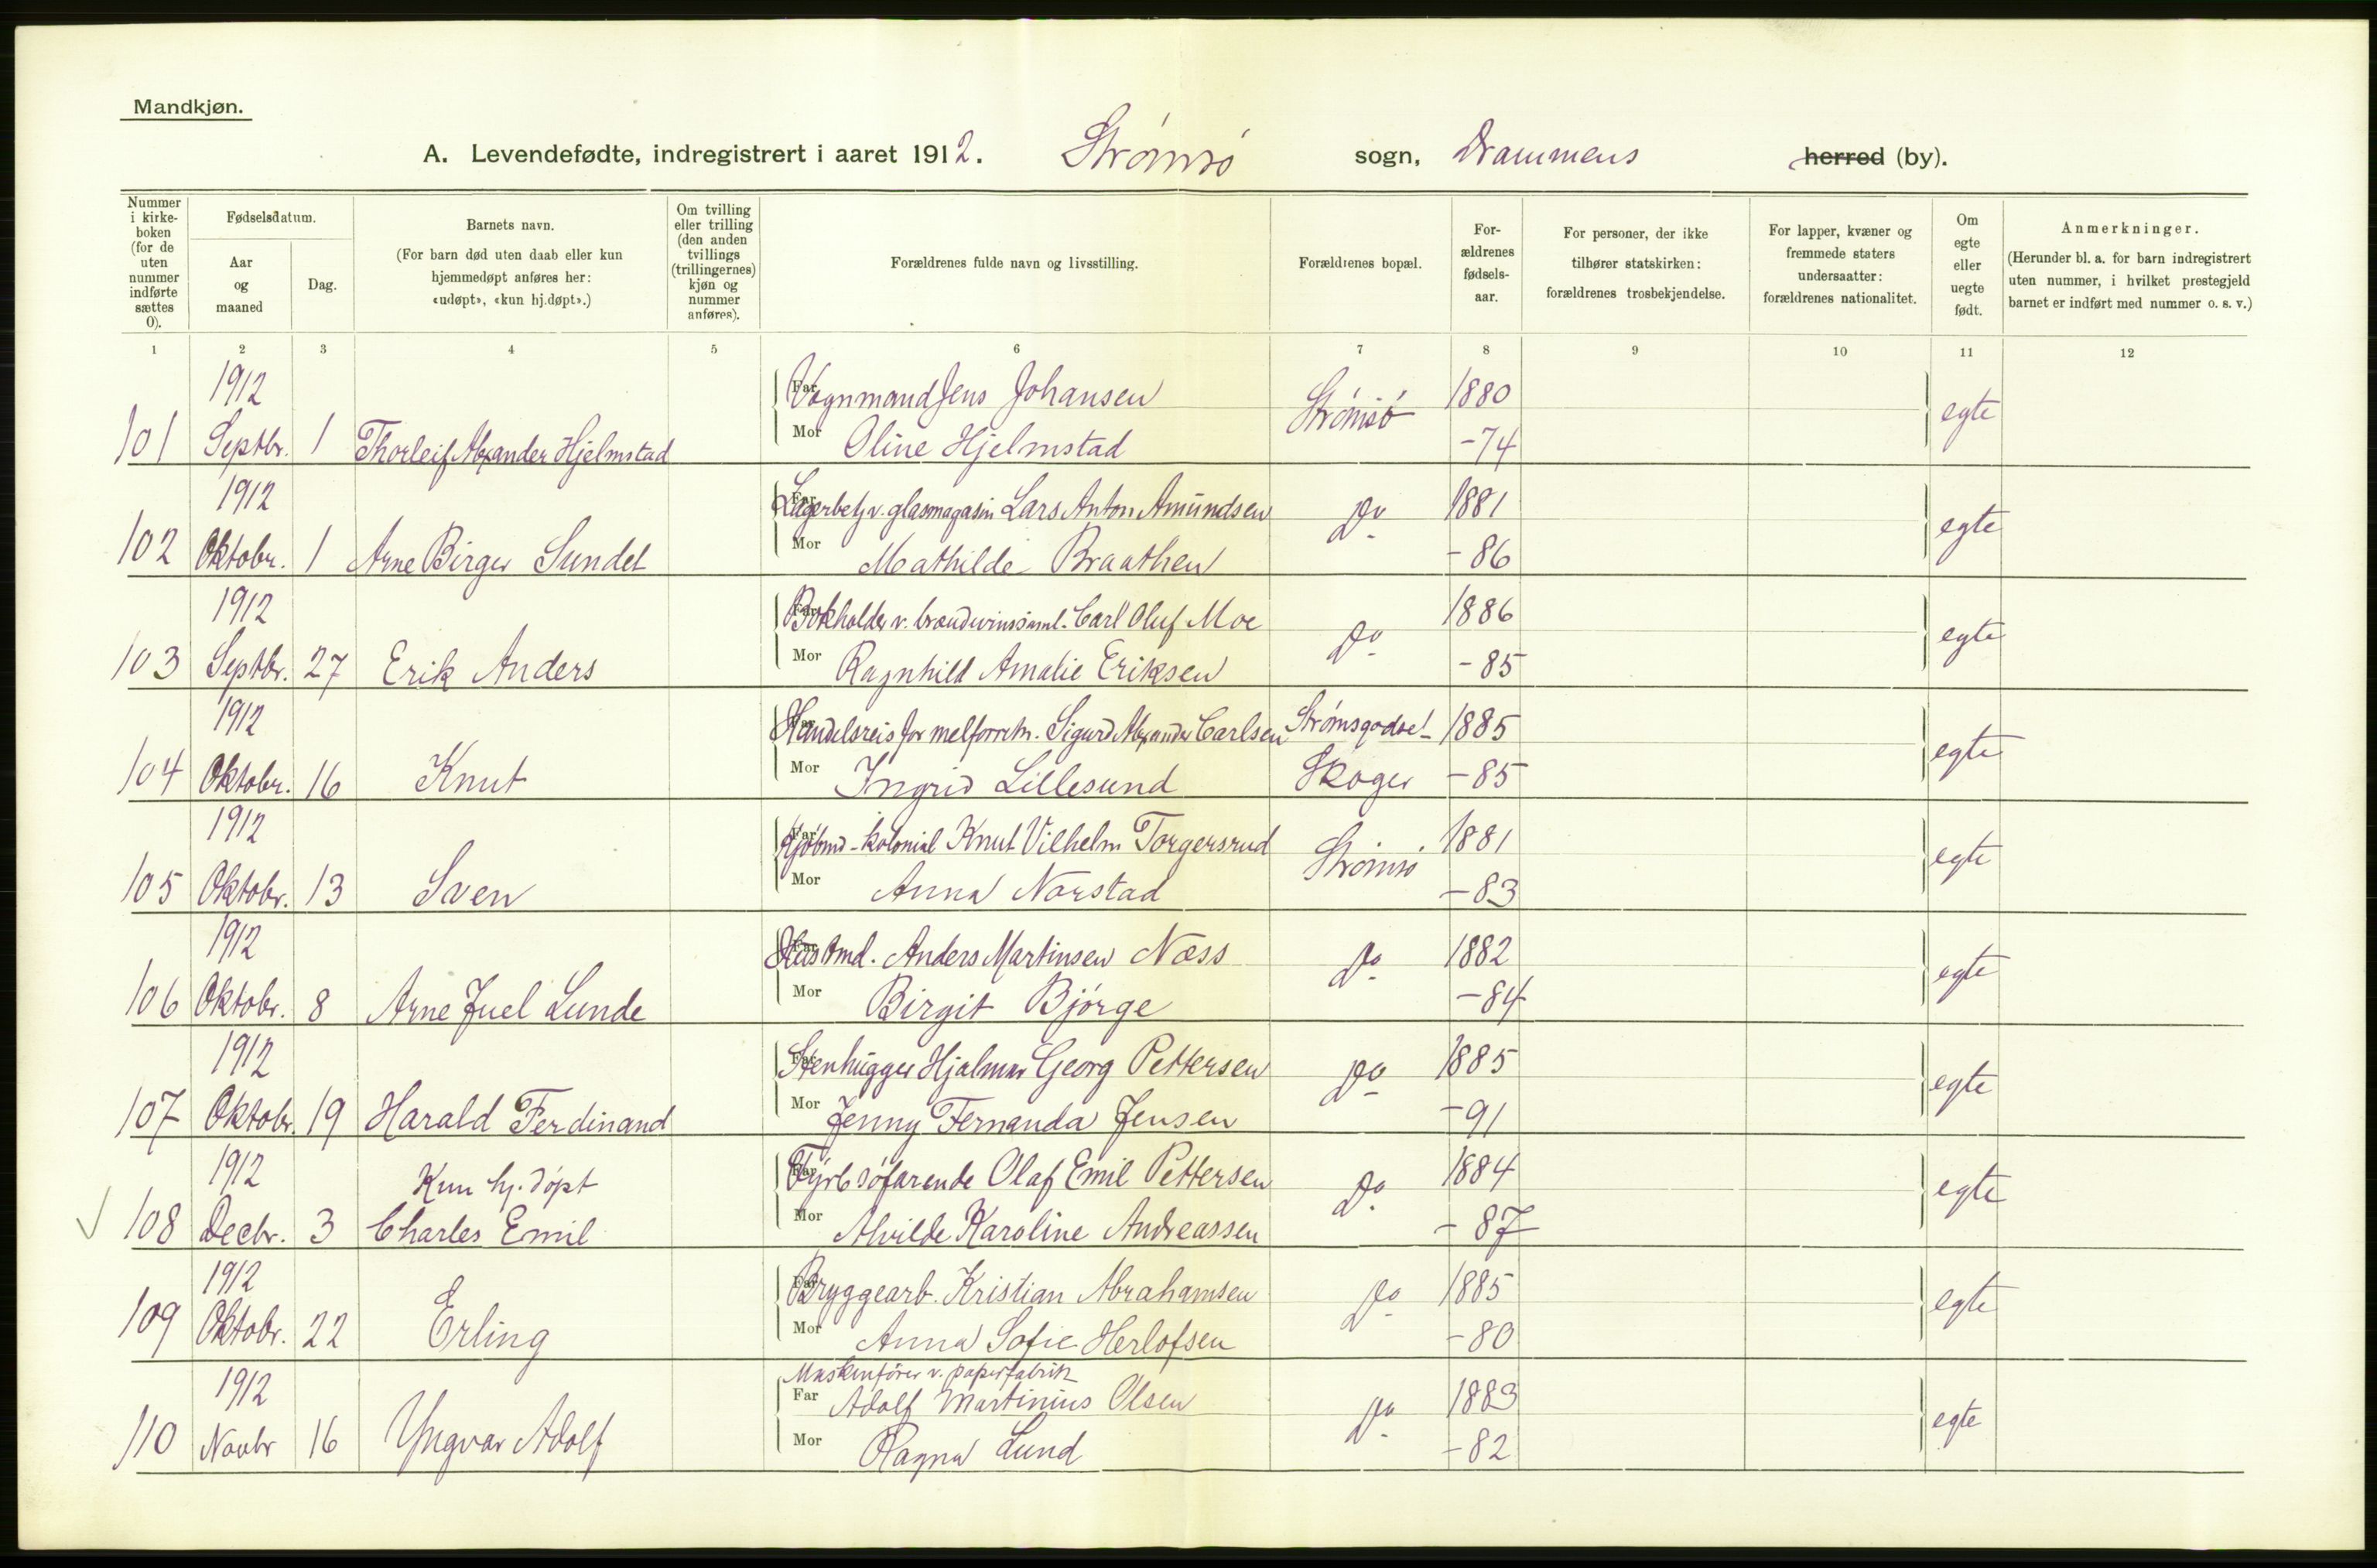 Mandkjøn.
A. Levendefødte, indregistrert i aaret 1912. Strømsø sogn, Drammens herred (by).
Nummer i kirke-boken (for de uten nummer indførte sættes 0).
Fødselsdatum.
Aar og maaned
Dag.
Barnets navn.
(For barn død uten daab eller kun hjemmedøpt anføres her: «udøpt», «kun hj.døpt».)
Om tvilling eller trilling (den anden tvillings (trillingernes) kjøn og nummer anføres).
Forældrenes fulde navn og livsstilling.
Forældrenes bopæl.
For-ældrenes fødsels-aar.
For personer, der ikke tilhører statskirken: forældrenes trosbekjendelse.
For lapper, kvæner og fremmede staters undersaatter: forældrenes nationalitet.
Om egte eller uegte født.
Anmerkninger.
(Herunder bl. a. for barn indregistrert uten nummer, i hvilket prestegjeld barnet er indført med nummer o. s. v.)
1 2 3 4 5 6 7 8 9 10 11 12
1912 Far Vognmand Jens Johansen Strømsø 1880 egte
101 Septbr. 1 Thorleif Alexander Hjelmstad Mor Oline Hjelmstad -74
1912 Far Lagerbetj. v. glasmagasin Lars Anton Amundsen Do 1881 egte
102 Oktobr. 1 Arne Birger Sundet Mor Mathilde Braathen -86
1912 Far Bokholder v. brændevinssaml. Carl Oluf Moe Do 1886 egte
103 Septbr. 27 Erik Anders Mor Ragnhild Amalie Eriksen -85
1912 Far Handelsreis for melforretn. Sigurd Alexander Carlsen Strømsgodset 1885 egte
104 Oktobr. 16 Knut Mor Ingrid Lillesund Skoger -85
1912 Far Kjøbmd - kolonial Knut Vilhelm Torgersrud Strømsø 1881 egte
105 Oktobr. 13 Sven Mor Anna Norstad -83
1912 Far Anders Martinsen Næss Do 1882 egte
106 Oktobr. 8 Arne Juel Lunde Mor Birgit Bjørge -84
1912 Far Stenhugger Hjalmar Georg Pettersen Do 1885 egte
107 Oktobr. 19 Harald Ferdinand Mor Jenny Fernanda Jensen -91
1912 Kun hj. døpt Far Fyrb søfarende Olaf Emil Pettersen Do 1884 egte
108 Decbr. 3 Charles Emil Mor Alvilde Karoline Andreassen -87
1912 Far Bryggearb. Kristian Abrahamsen Do 1885 egte
109 Oktobr. 22 Erling Mor Anna Sofie Herlofsen -80
Maskinfører v. papirfabrik
1912 Far Adolf Martinius Olsen Do 1883 egte
110 Novbr 16 Yngvar Adolf Mor Ragna Lund -82